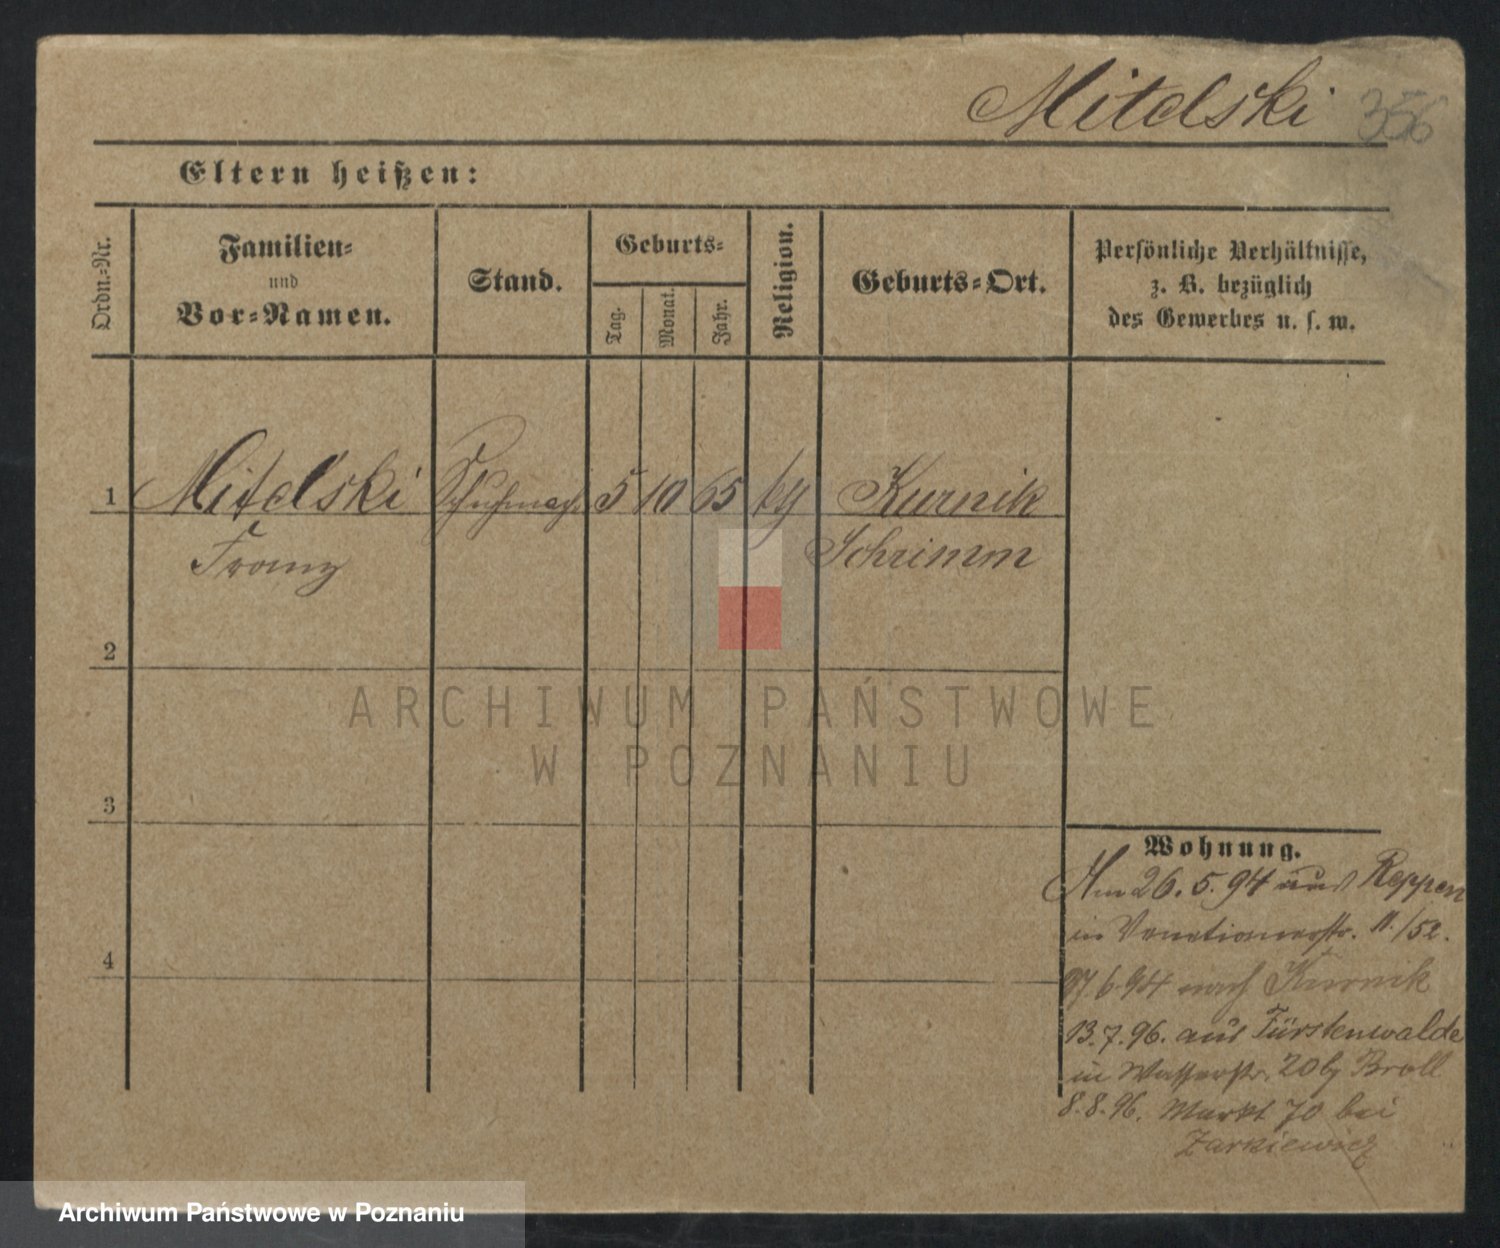 Mitelski 356
Eltern heißen:
Ordn.-Nr.
Familien-
und
Vor-Namen.
Stand.
Geburts-
Tag.
Monat.
Jahr.
Religion.
Geburts-Ort.
Persönliche Verhältnisse,
z. B. bezüglich
des Gewerbes u. s. w.
1 Mitelski Schuhmach. 5 10 65 kg Kurnik
Franz Schrimm
2
3
4
Wohnung.
Am 26. 5. 94 aus Reppen
in Venetianerstr. 11./52.
6 94 nach Kurnik
13. 7. 96. aus Fürstenwalde
in Wasserstr. 20 b/ Broll
8. 8. 96. Markt 70 bei
Zarkiewicz
ARCHIWUM PAŃSTWOWE
W POZNANIU
Archiwum Państwowe w Poznaniu